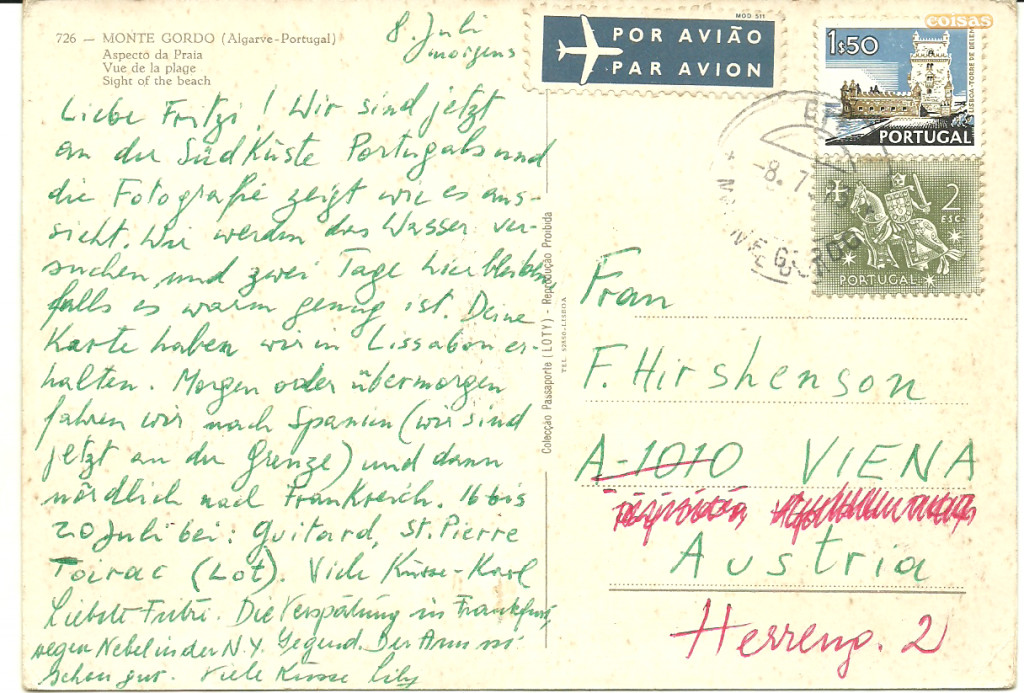 coisas
MOD 511
POR AVIÃO
PAR AVION
1$50
LISBOA-TORRE DE BELEM
PORTUGAL
2
ESC.
PORTUGAL
-8. 7
726 — MONTE GORDO (Algarve-Portugal)
Aspecto da Praia
Vue de la plage
Sight of the beach
8. Juli
morgens
Liebe Fritzi! Wir sind jetzt
an der Südküste Portugals und
die Fotografie zeigt wie es aus-
sieht. Wir werden das Wasser ver-
suchen und zwei Tage hierbleiben
falls es warm genug ist. Deine
Karte haben wir in Lissabon er-
halten. Morgen oder übermorgen
fahren wir nach Spanien (wir sind
jetzt an der Grenze) und dann
nördlich nach Frankreich. 16 bis
20 Juli bei: Guitard, St. Pierre
Toirac (Lot). Viele Küsse - Karl
Liebste Fritzi. Die Verspätung in Frankfurt,
wegen Nebel in der N.Y. Gegend. Der Arm
schon gut. Viele Küsse Lily
Colecção Passaporte (LOTY) - Reprodução Proibida
TEL. 52850-LISBOA
Frau
F. Hirshenson
A-1010 VIENA
Austria
Herreng. 2